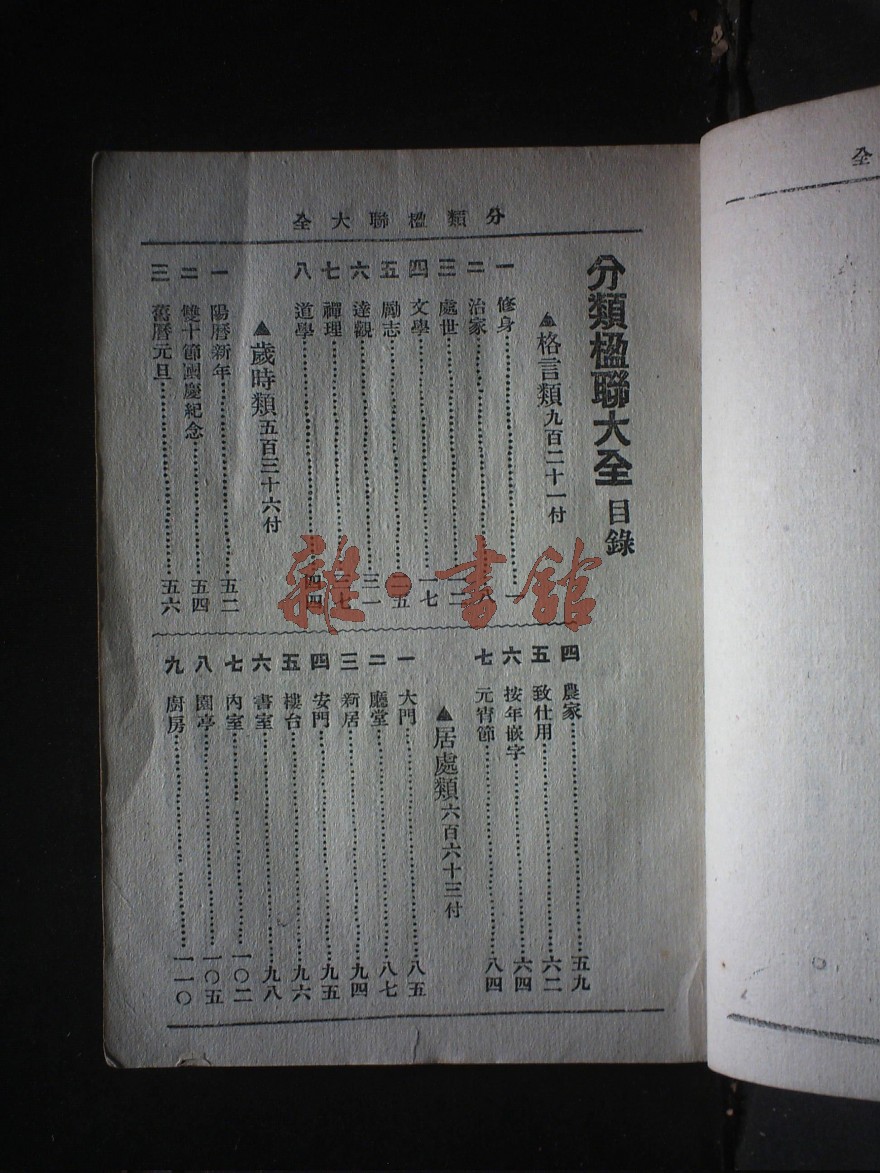 分類楹聯大全
分類楹聯大全 目錄
▲格言類 九百二十一付
一 修身 一
二 治家 八
三 處世 一二
四 文學 一七
五 勵志 二五
六 達觀 三一
七 禪理 三七
八 道學 四四
▲歲時類 五百三十六付
一 陽曆新年 五二
二 雙十節國慶紀念 五四
三 舊曆元旦 五六
四 農家 五九
五 致仕用 六二
六 按年嵌字 六四
七 元宵節 八四
▲居處類 六百六十三付
一 大門 八五
二 廳堂 八七
三 新居 九四
四 安門 九五
五 樓台 九六
六 書室 九八
七 內室 一〇二
八 園亭 一〇五
九 廚房 一一〇
雜·書館
全